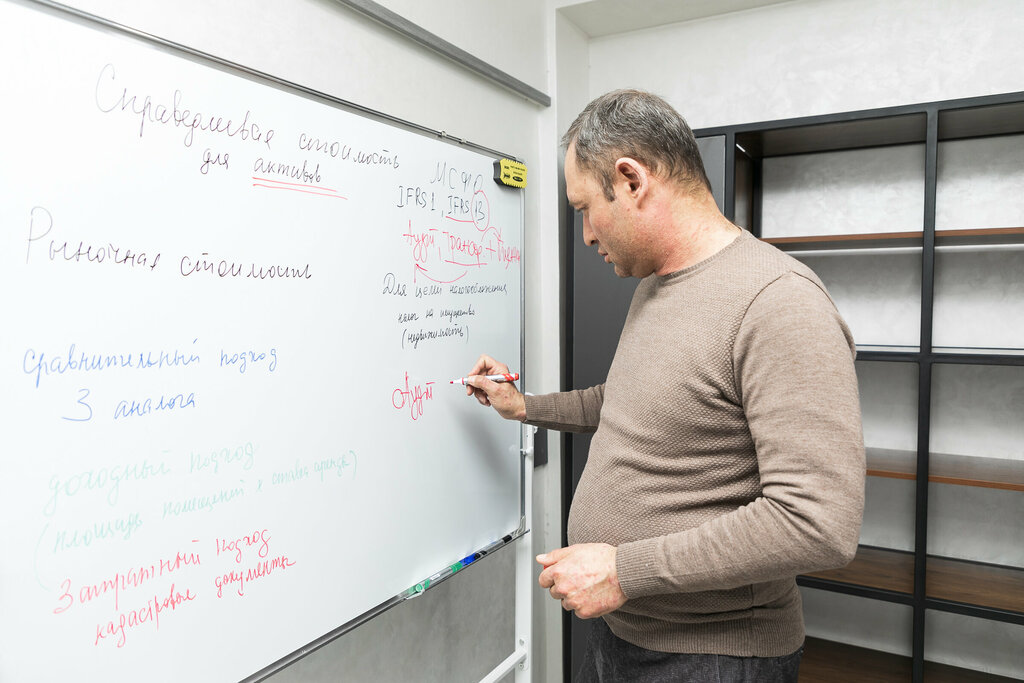 Справедливая стоимость
для активов
Рыночная стоимость
Сравнительный подход
3 аналога
доходный подход
(площадь помещений х ставка аренды)
Затратный подход
кадастровые документы
МСФО
IFRS 1, IFRS 13
Аудит, Трансф
Для цели налогообложения
налог на имущество
(недвижимость)
Аудит